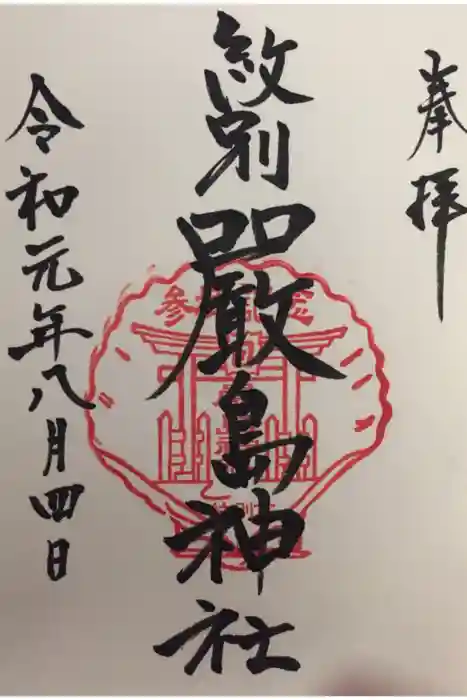 奉拝
紋別厳島神社
令和元年八月四日